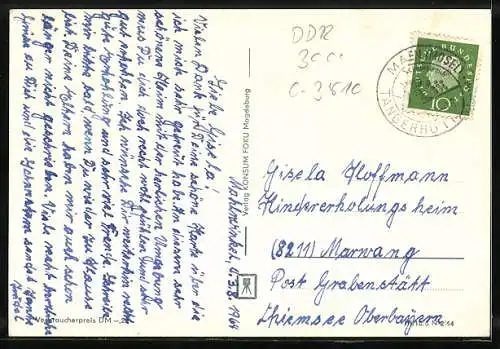 Mahlwinkel, d. 3.8.1964
Liebe Gisela!
Vielen Dank für Deine schöne Karte über die
ich mich sehr gefreut habe. In diesem sehr
schönen Heim mit der herrlichen Umgebung
mußt Du Dich doch recht wohl fühlen und sehr
gut erholen. Ich wünsche Dir weiterhin recht
gute Erholung und sehr viel Freude. Schreibe
mir bitte bald, wenn Du wieder zu Hause
bist. Deine Eltern haben mir auch schon
länger nicht geschrieben. Viele recht herzliche
Grüße an Dich und die Schwestern sendet
Verbraucherpreis DM
Verlag KONSUM FOKU Magdeburg
DDR
3001
C-3510
TANGERHÜTTE
DEUTSCHE BUNDESPOST
10
Gisela Hoffmann
Kindererholungsheim
(8211) Marwang
Post Grabenstätt
Chiemsee Oberbayern